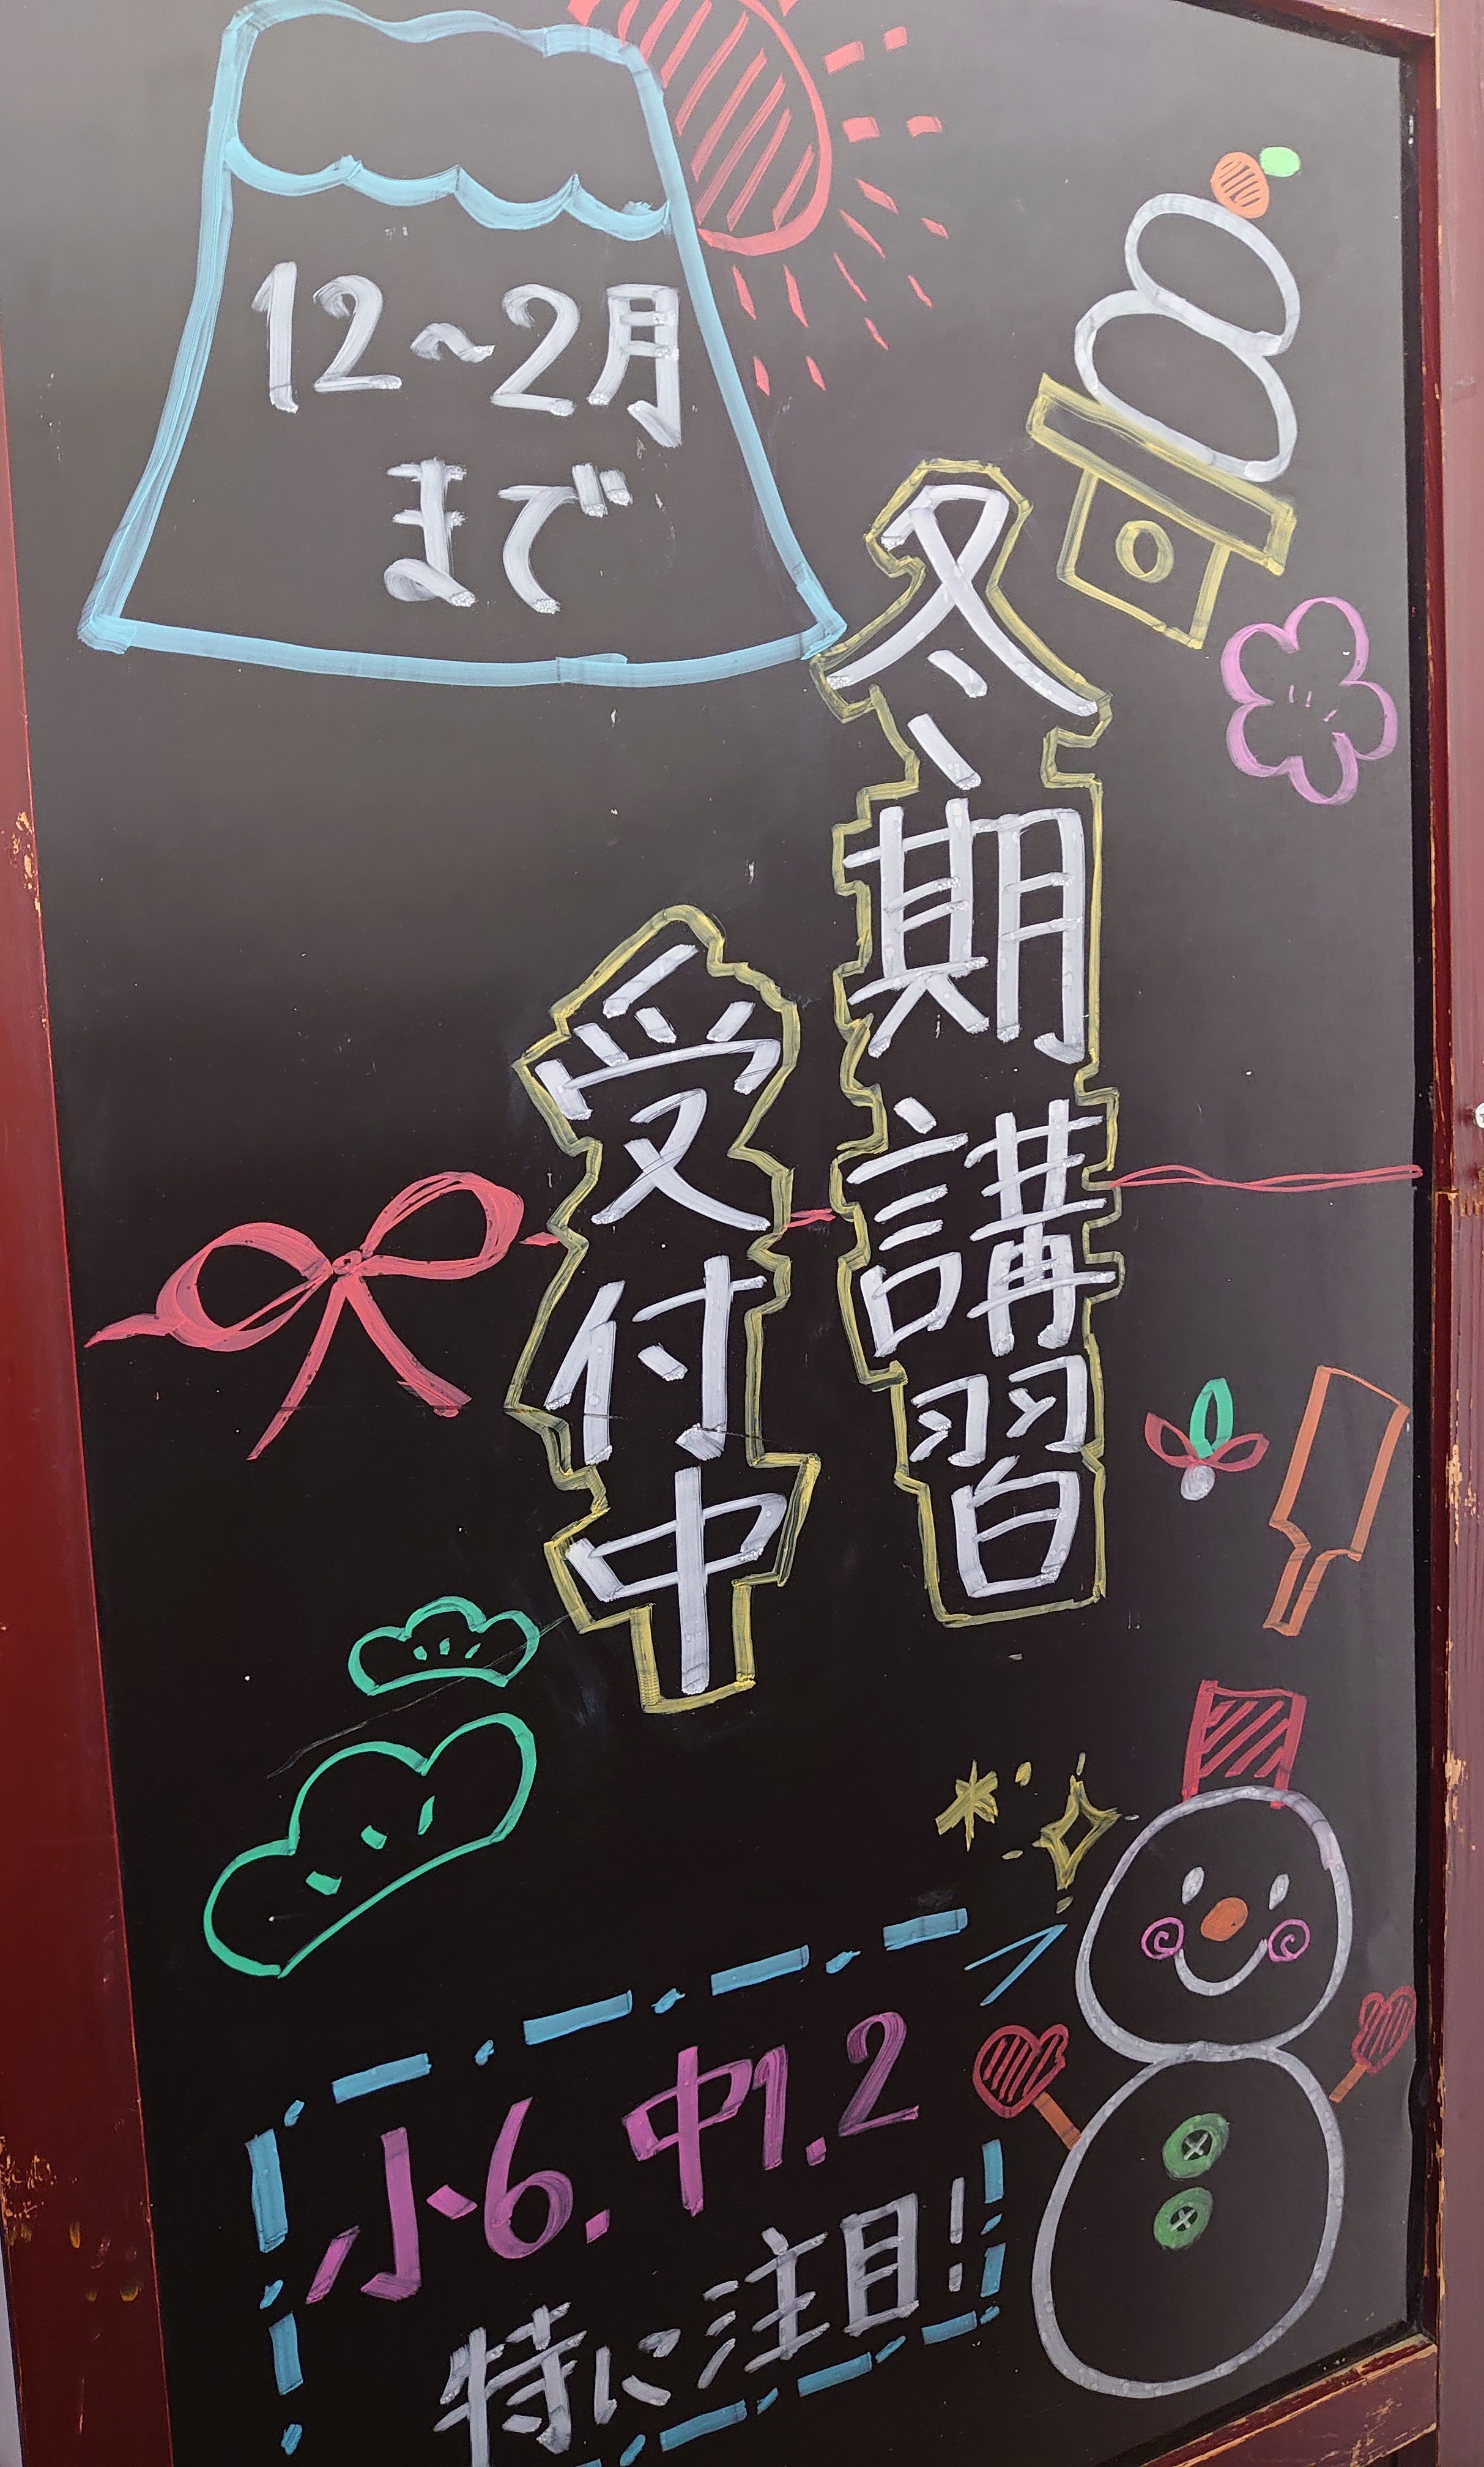 12〜2月
まで
冬期講習
受付中
小6.中1.2
特に注目!